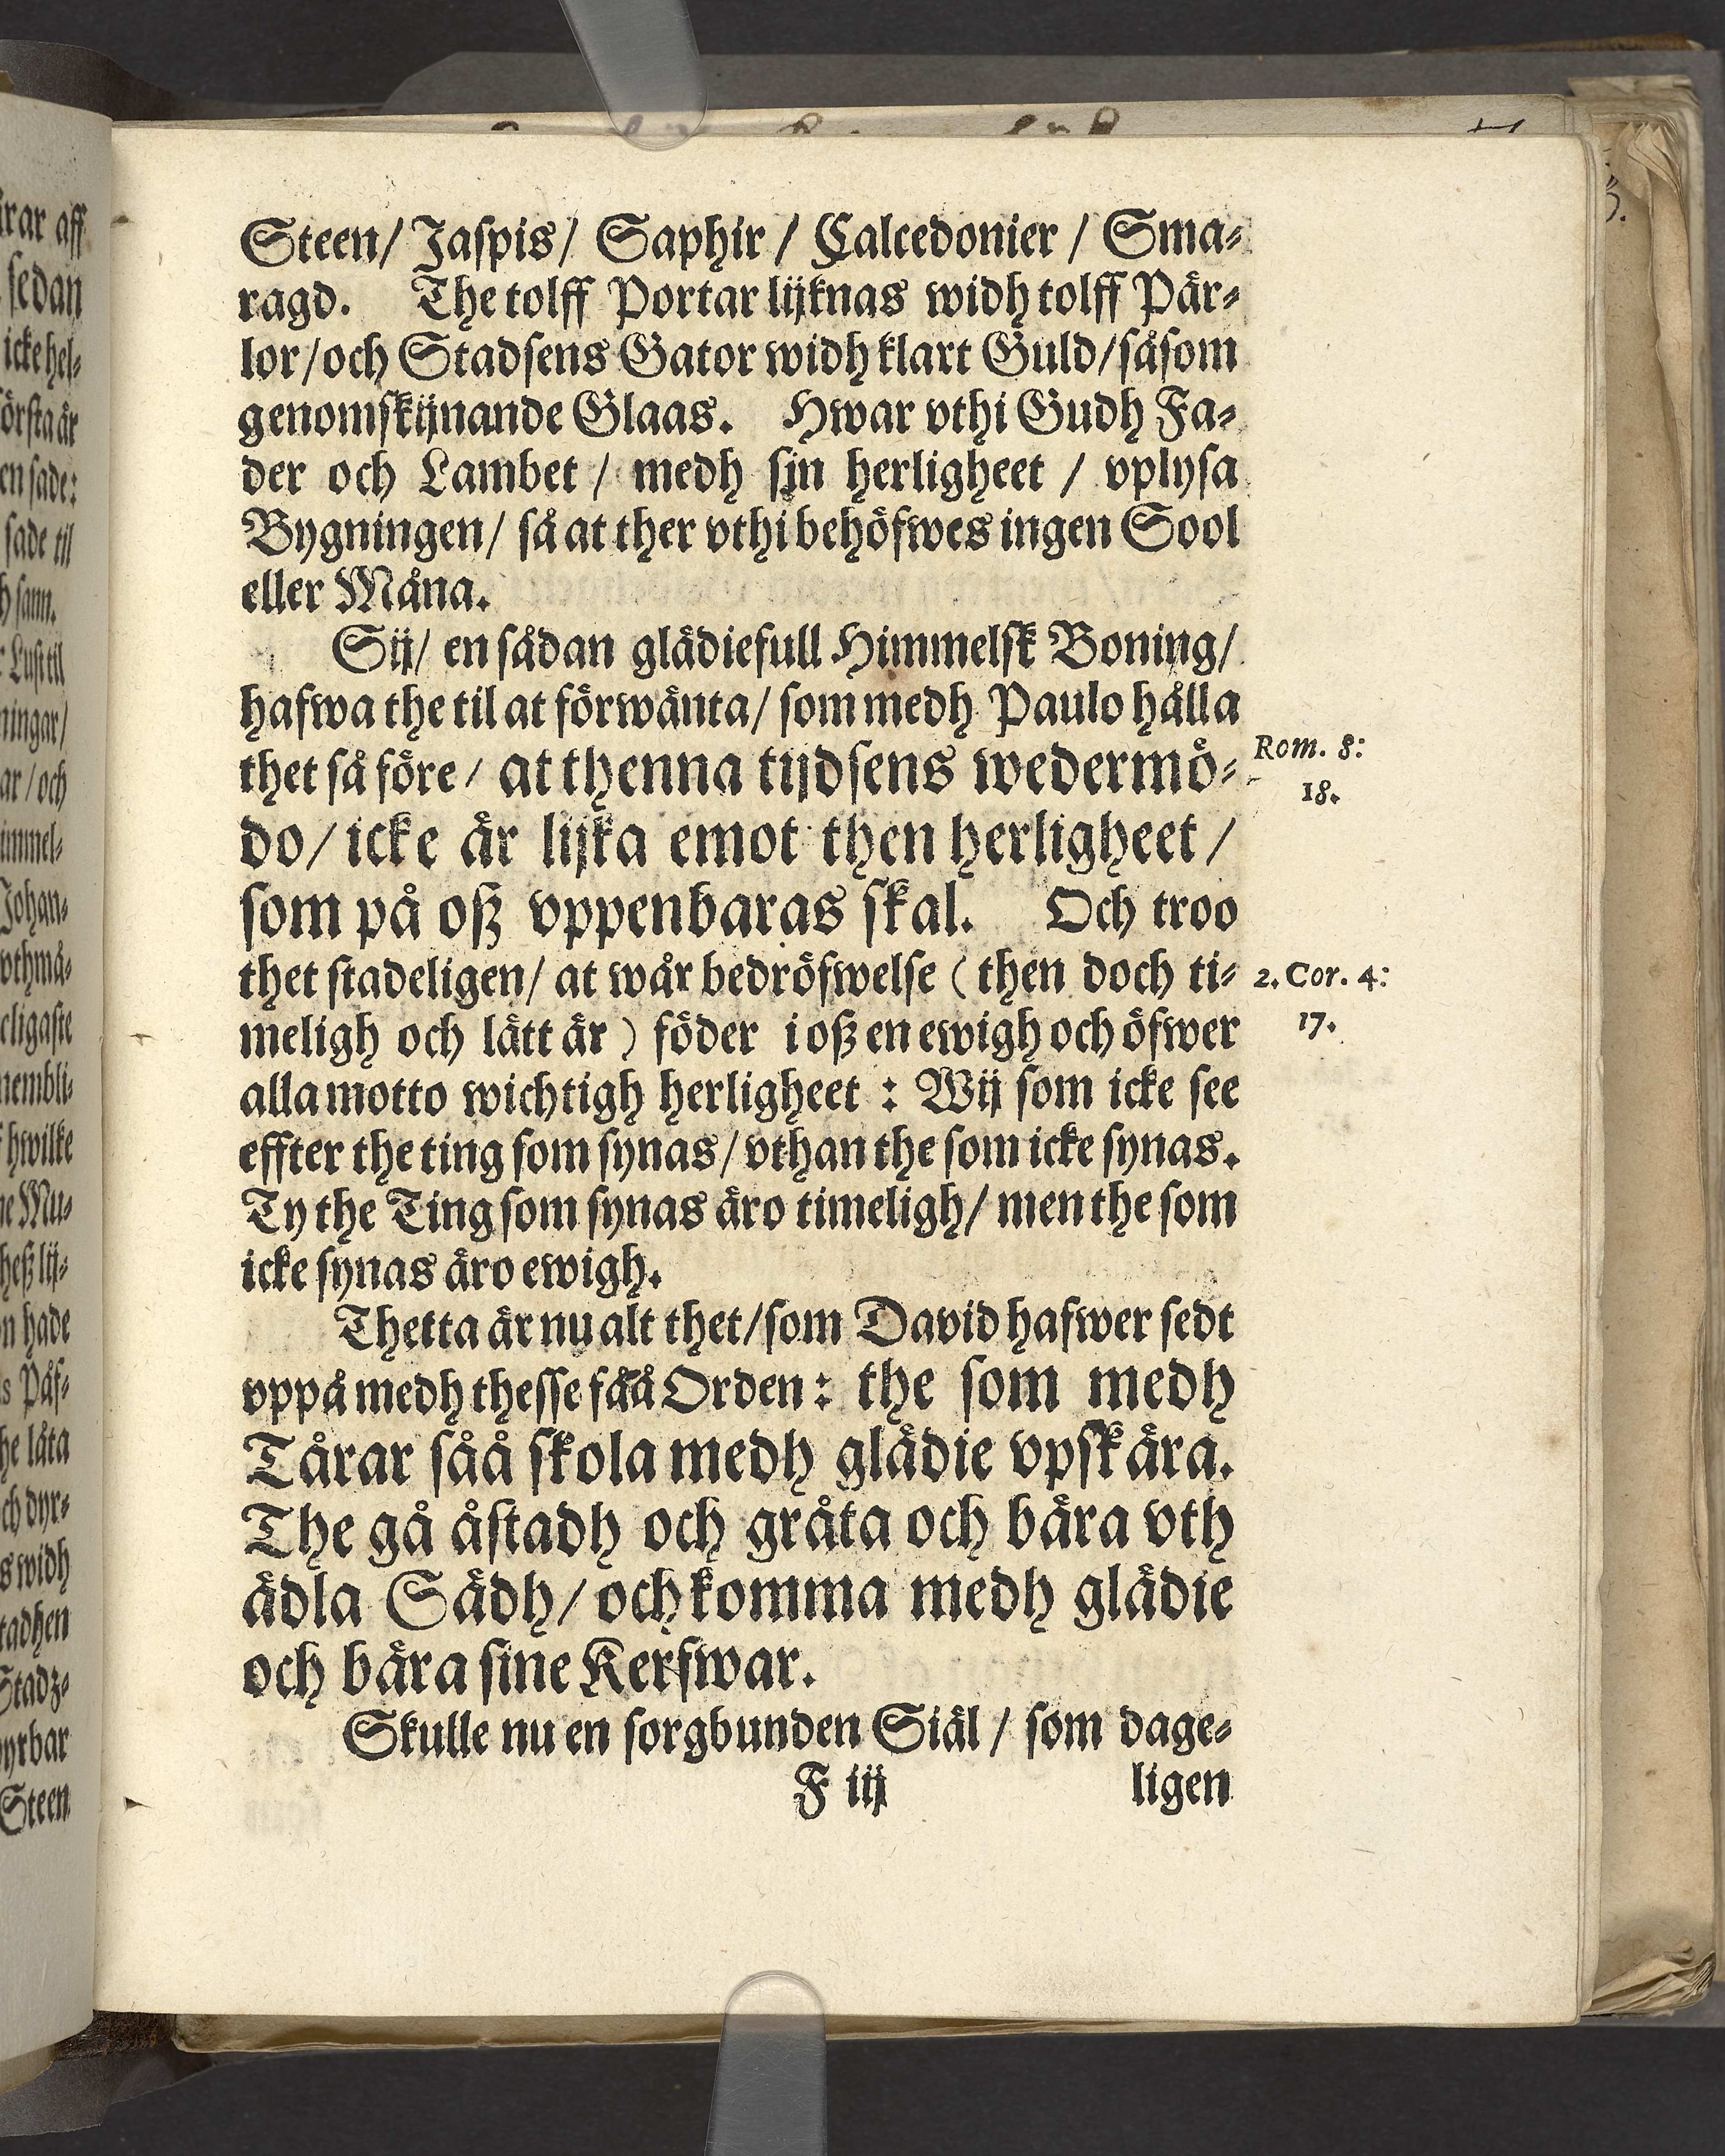 Steen/ Jaspis/ Saphir / Calcedonier / Sma-
ragd. The tolff Portar lijknas widh tolff Pär-
lor/och Stadsens Gator widh klart Guld/såsom
genomskijnande Glaas. Hwar vthi Gudh Fa-
der och Lambet / medh sjn herligheet / vplysa
Bygningen/ så at ther vthi behöfwes ingen Sool
eller Måna.
Sij/ en sådan glädiefull Himmelsk Boning/
hafwa the til at förwänta/ som medh Paulo hålla
thet så före/ at thenna tijdsens wedermö-
Rom. 8:
18.
do/ icke är lijka emot then herligheet/
som på oß vppenbaras skal. Och troo
thet stadeligen/ at wår bedröfwelse (then doch ti-
2. Cor. 4:
meligh och lätt är) föder i oß en ewigh och öfwer
17.
alla motto wichtigh herligheet : Wij som icke see
effter the ting som synas/ vthan the som icke synas.
Ty the Ting som synas äro timeligh/ men the som
icke synas äro ewigh.
Thetta är nu alt thet/som David hafwer sedt
vppå medh thesse fåå Orden: the som medh
Tårar såå skola medh glädie vpskära.
The gå åstadh och gråta och bära vth
ädla Sädh/ och komma medh glädie
och bära sine Kerfwar.
Skulle nu en sorgbunden Siäl / som dage-
F iij ligen